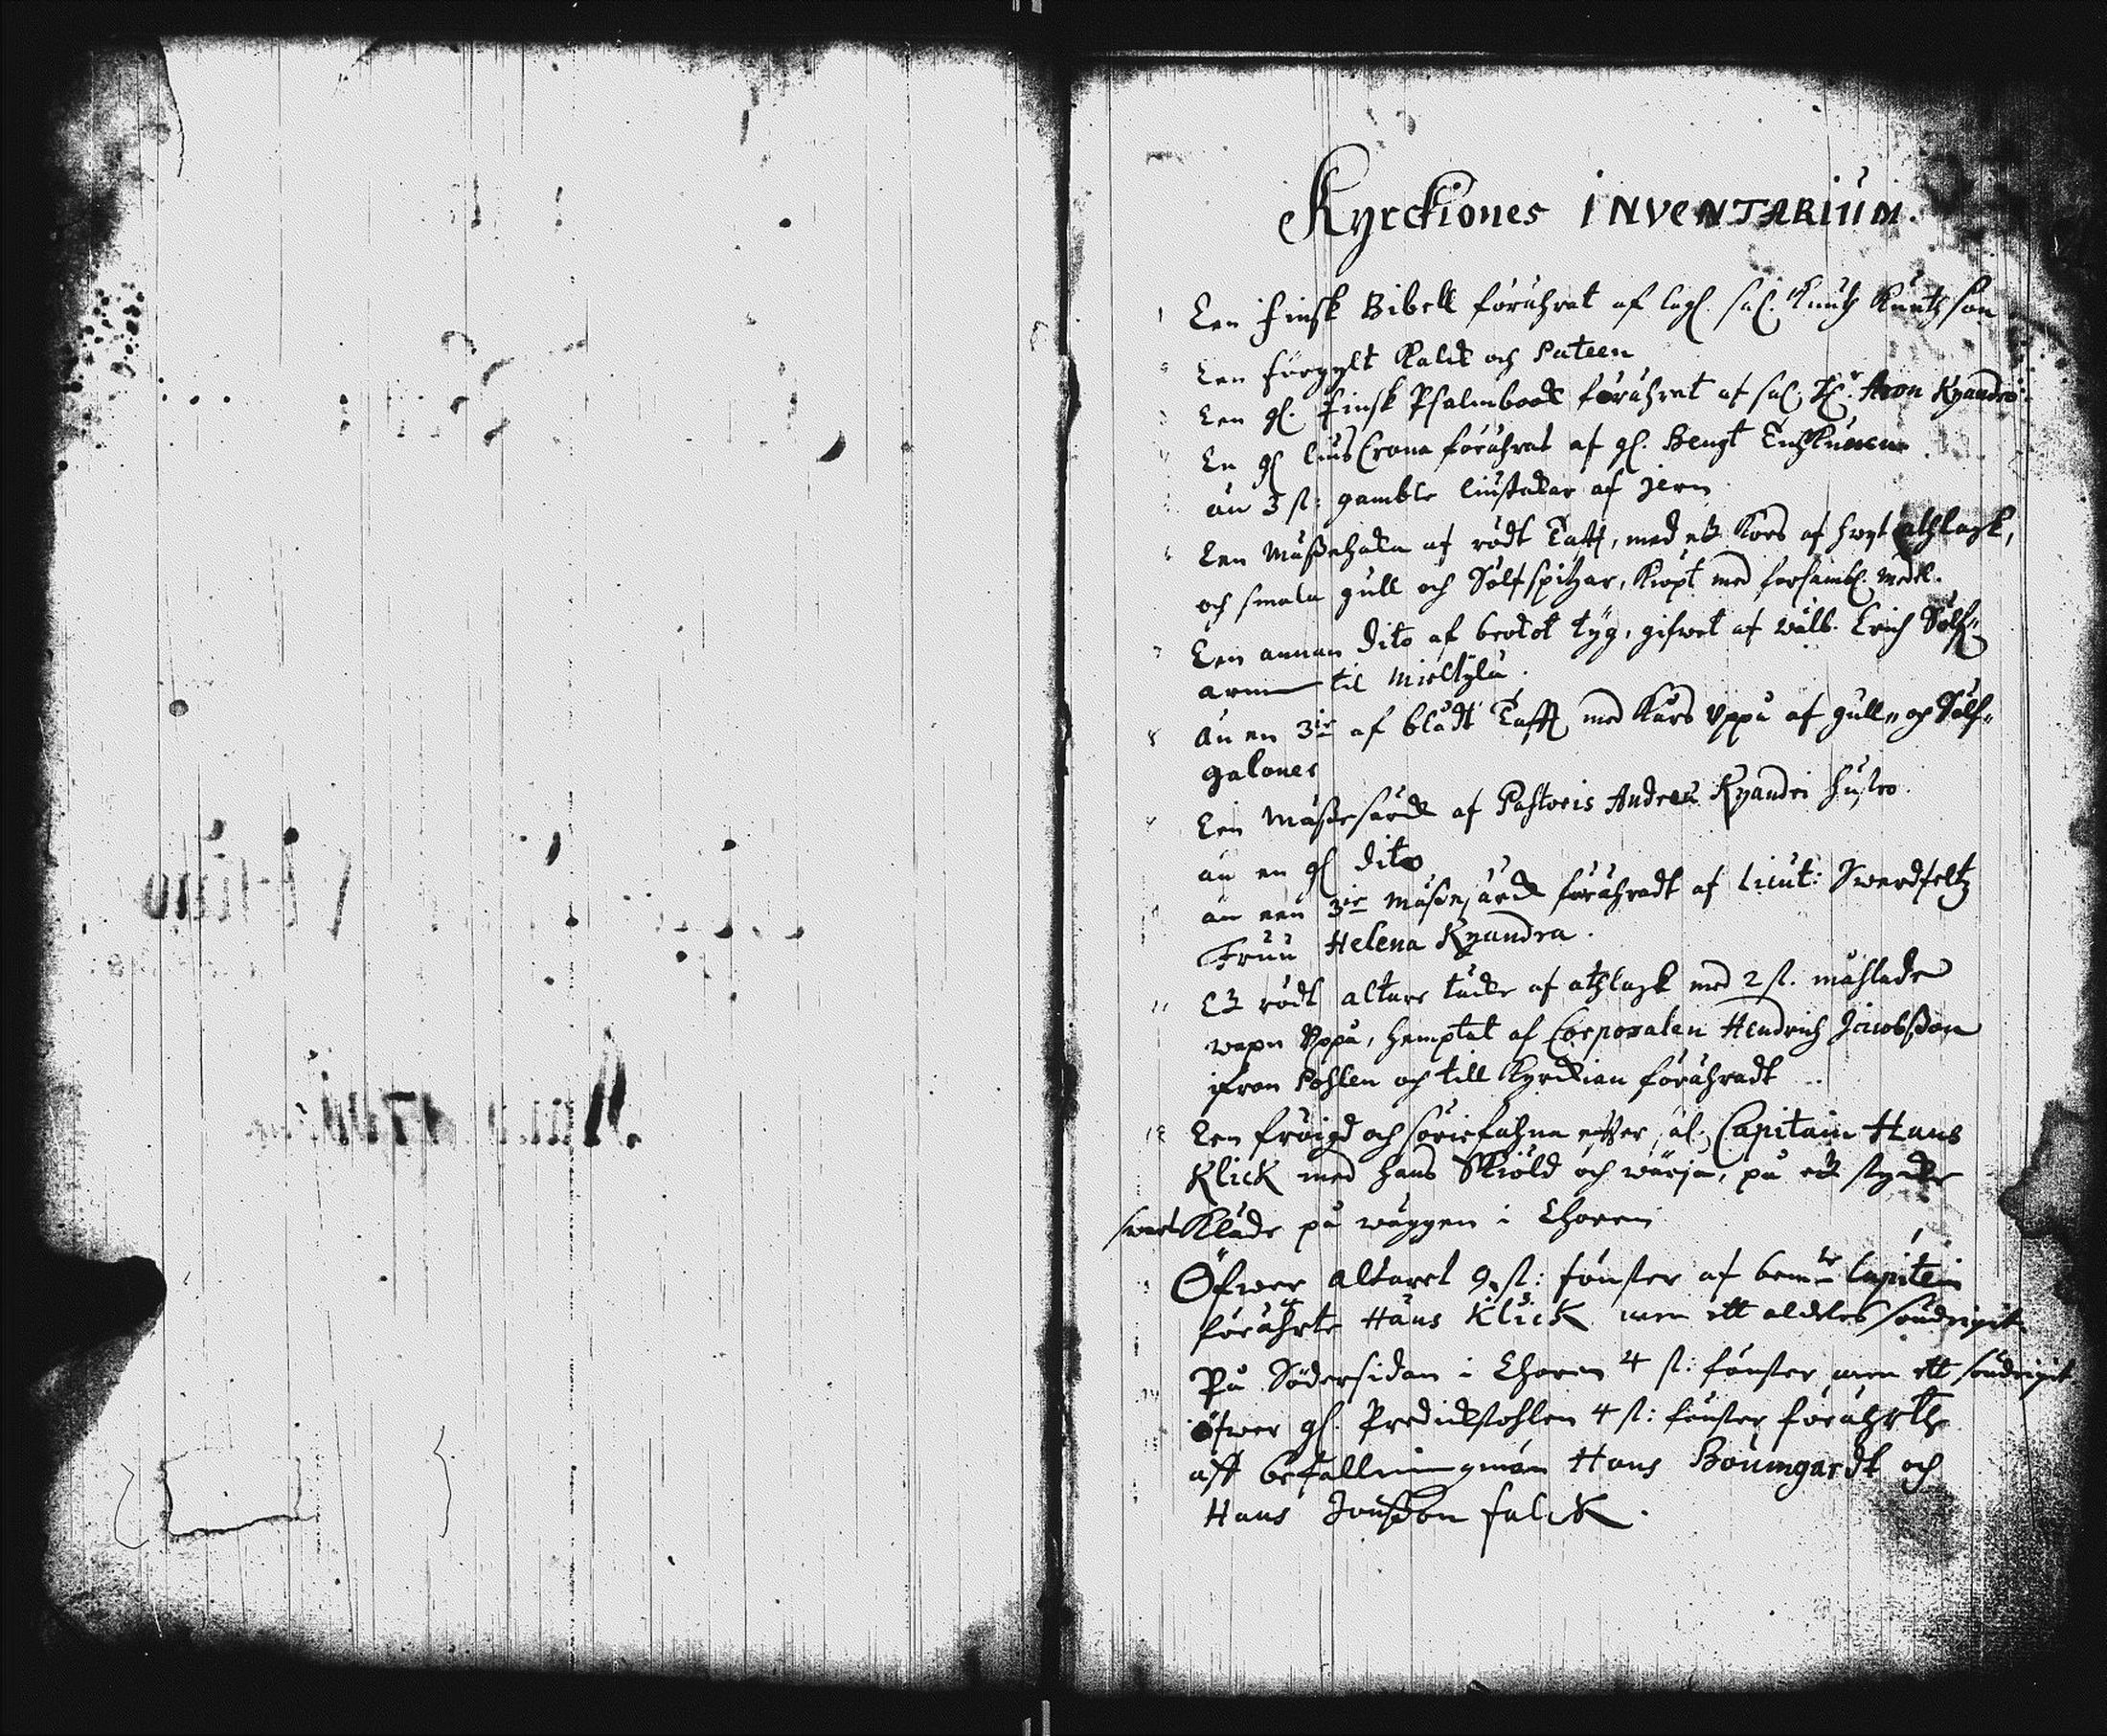 Kyrckiones INVENTARIUM.
1 Een Finsk Bibell förährat af sal. Knutz Knutzson
Een förgylt Kalck och Pateen
3 Een gl. Finsk Psalmbook förährat af sal. Hr. Aron Kyandro
En gl. lius Crona förährat af gl. Bengt
än 3 st: gamble liustakar af jern
6 Een Mässehaka af rödt Tafft, med ett Kors af hwijt athlask,
och smala gull och Sölfspitzar, Kiöpt med försambl. medel.
7 Een annan dito af brokot tÿg, gifwet af wälb. Erich Sölf-
arm til Mieltÿlä.
8 Än en 3ie af blådt Tafft med Kårs Uppå af gull- och Sölf-
galoner
Een Mässesärck af Pastoris Andreæ Kyandri hustro.
än en gl dito
än een 3ie mässesärck förähradt af Lieut: Swerdfeltz
Fruu Helena Kyandra.
11 Ett rödt altare täcke af athlask med 2 st. målade
wapn Uppå, hemptat af Corporalen Hendrich Jacobsson
ifrån Pohlen och till Kyrckian förähradt
12 Een fröigd och söriefahna effter sal. Capitain Hans
Klick med hans Skiöld och wärja, på ett stycke
swart Kläde på wäggen i Choren
Öfwer altaret 9 st: fönster af bem:te Capitein
förährte Hans Klick men ett aldeles söndrigit.
På Södersidan i Choren 4 st: fönster men ett söndrigit.
öfwer gl. Predickstohlen 4 st: fönster förährte
aff befallningzman Hans Boumgardt och
Hans Jonsson Falck.